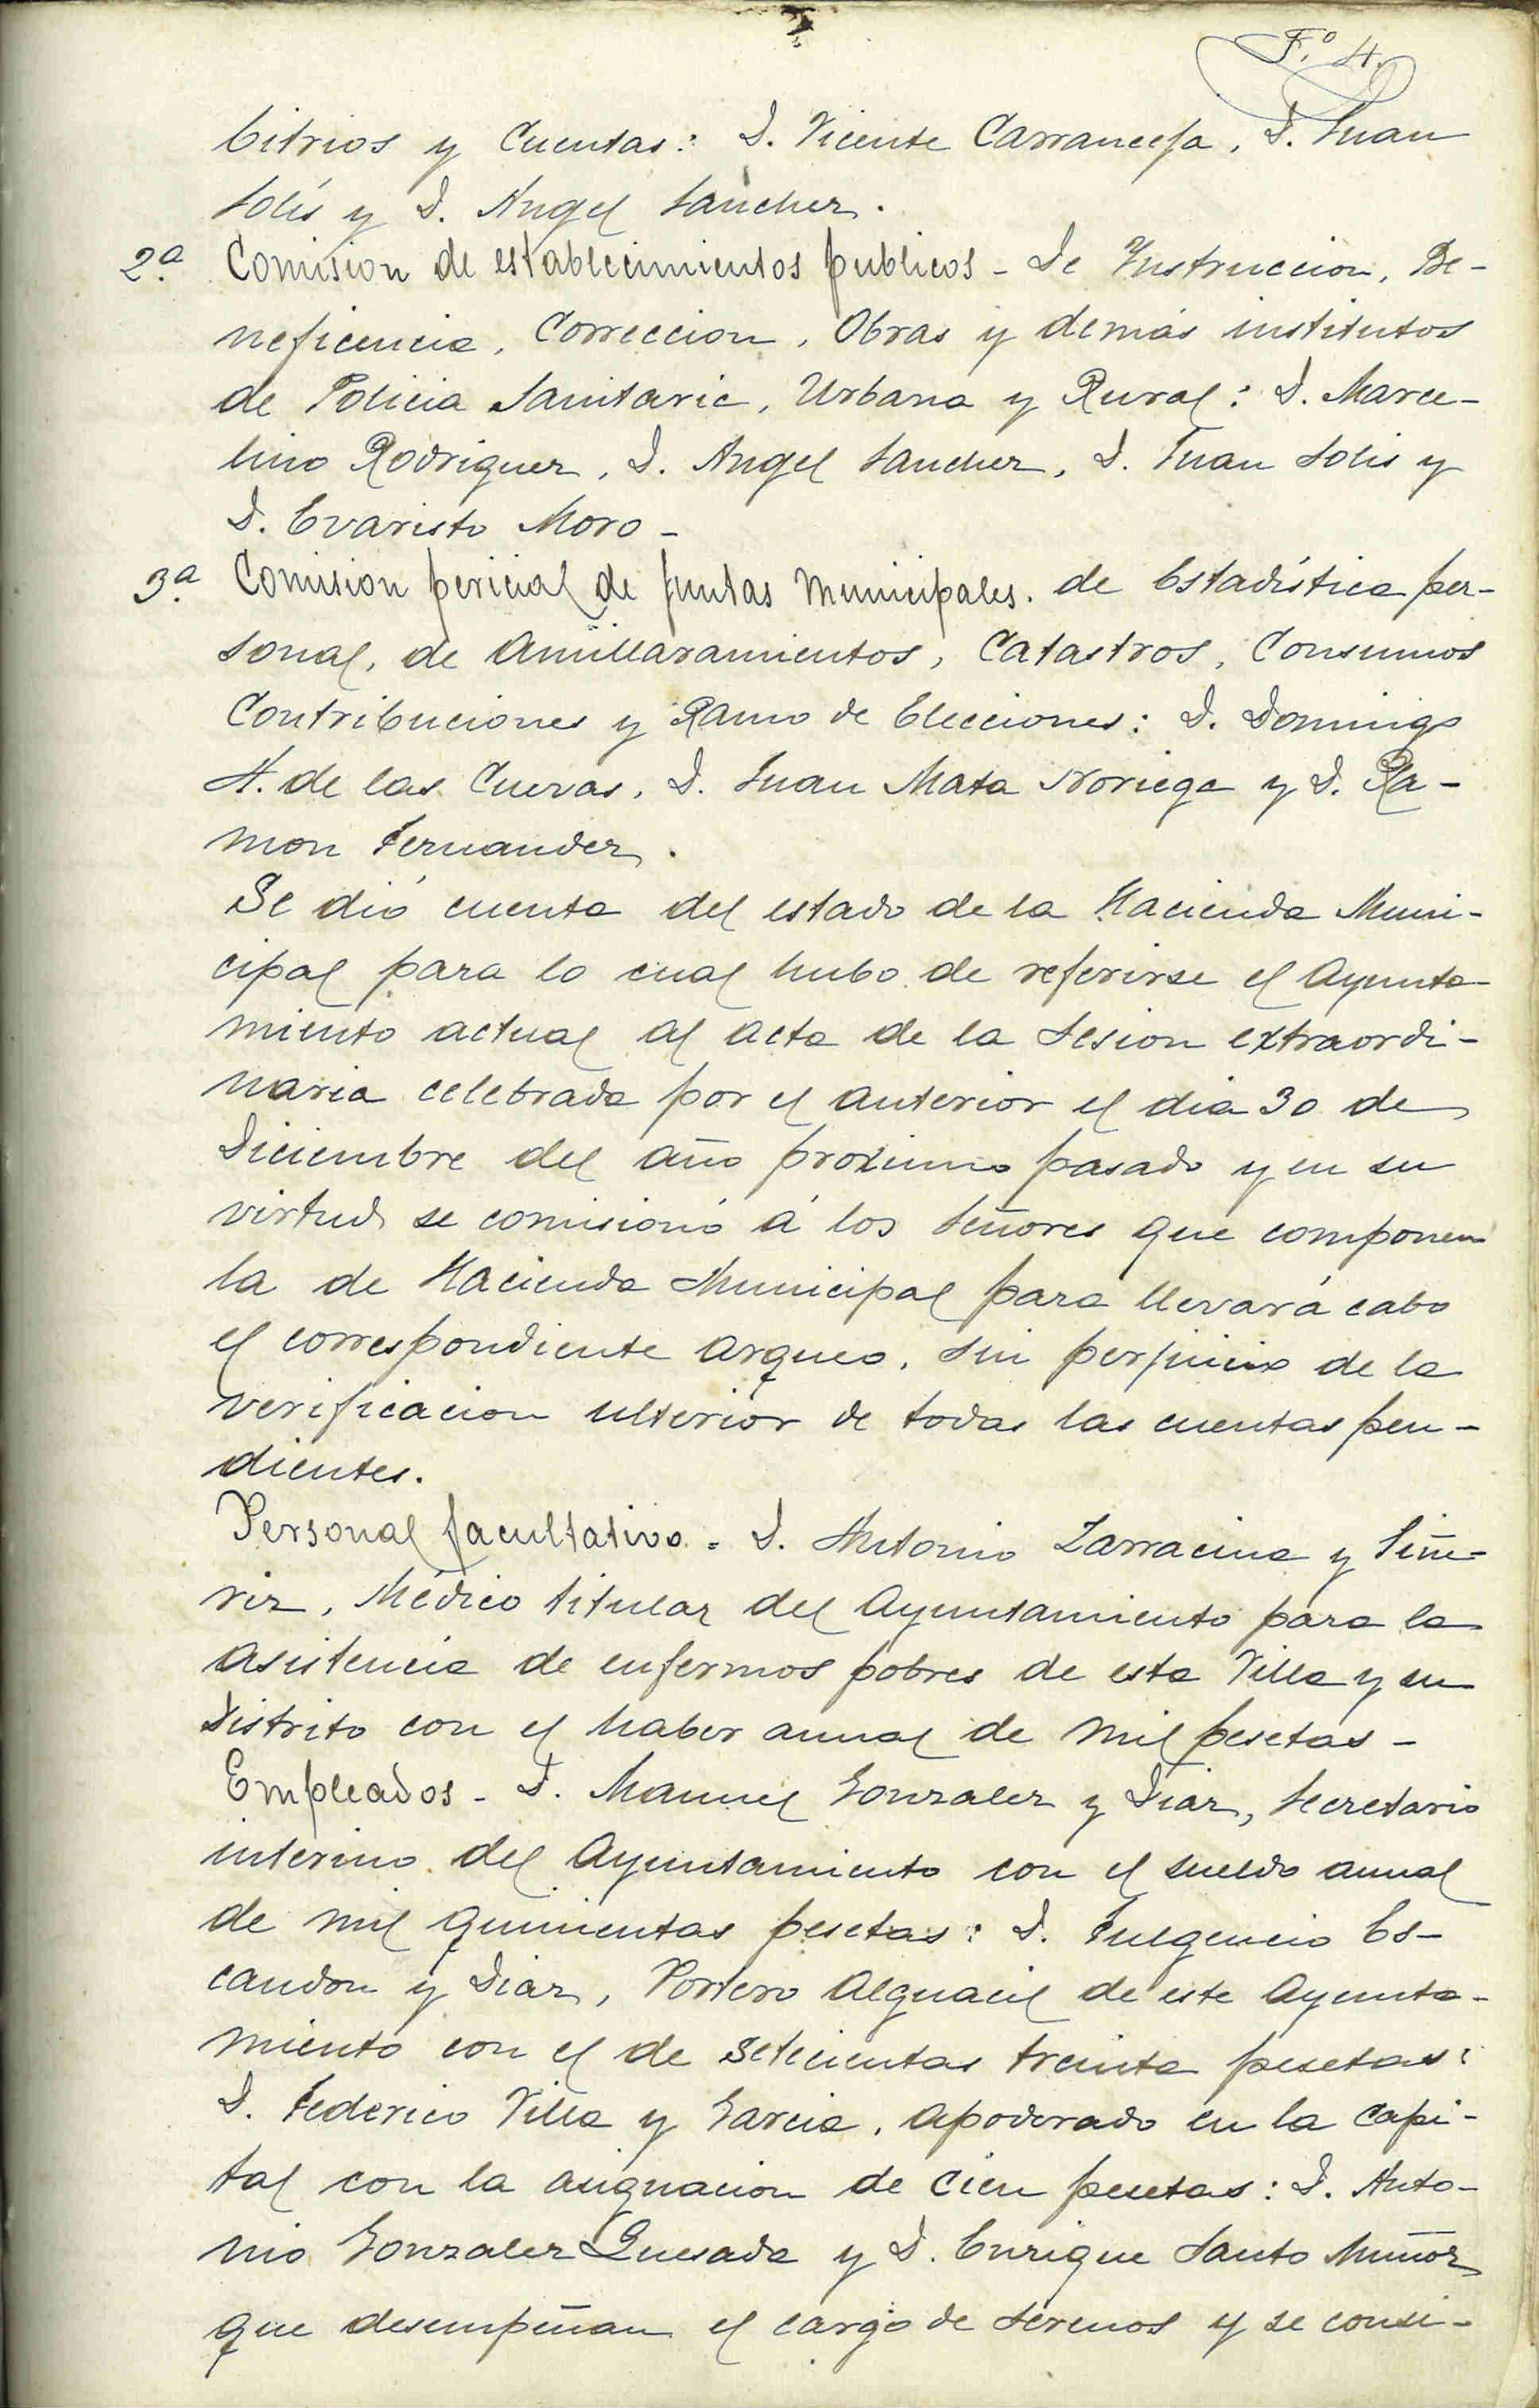 Fº 4.
bitrios y Cuentas: D. Vicente Carranceja, D. Juan
Solís y D. Angel Sanchez.
2ª. Comision de establecimientos publicos - De Instruccion, Be-
neficencia, Correccion, Obras y demás institutos
de Policia Sanitaria, Urbana y Rural: D. Marce-
lino Rodriguez, D. Angel Sanchez, D. Juan Solis y
D. Evaristo Moro -
3ª. Comision pericial de juntas municipales. de Estadística per-
sonal, de Amillaramientos, Catastros, Consumos
Contribuciones y Ramo de Elecciones: D. Domingo
H. de las Cuevas, D. Juan Mata Noriega y D. Ra-
mon Fernandez.
Se dió cuenta del estado de la Hacienda Muni-
cipal para lo cual hubo de referirse el Ayunta-
miento actual al acta de la Sesion extraordi-
naria celebrada por el anterior el dia 30 de
Diciembre del año proximo pasado y en su
virtud se comisionó á los Señores que componen
la de Hacienda Municipal para llevar á cabo
el correspondiente arqueo, sin perjuicio de la
verificacion ulterior de todas las cuentas pen-
dientes.
Personal facultativo. - D. Antonio Zarracina y Siñe-
riz, Médico titular del Ayuntamiento para la
asistencia de enfermos pobres de esta Villa y su
Distrito con el haber anual de mil pesetas -
Empleados - D. Manuel Gonzalez y Diaz, Secretario
interino del Ayuntamiento con el sueldo anual
de mil quinientas pesetas: D. Fulgencio Es-
candon y Diaz, Portero Alguacil de este Ayunta-
miento con el de setecientas treinta pesetas:
D. Federico Villa y Garcia, apoderado en la Capi-
tal con la asignacion de cien pesetas: D. Anto-
nio Gonzalez Quesada y D. Enrique Santo Muñoz
que desempeñan el cargo de Serenos y se consi-